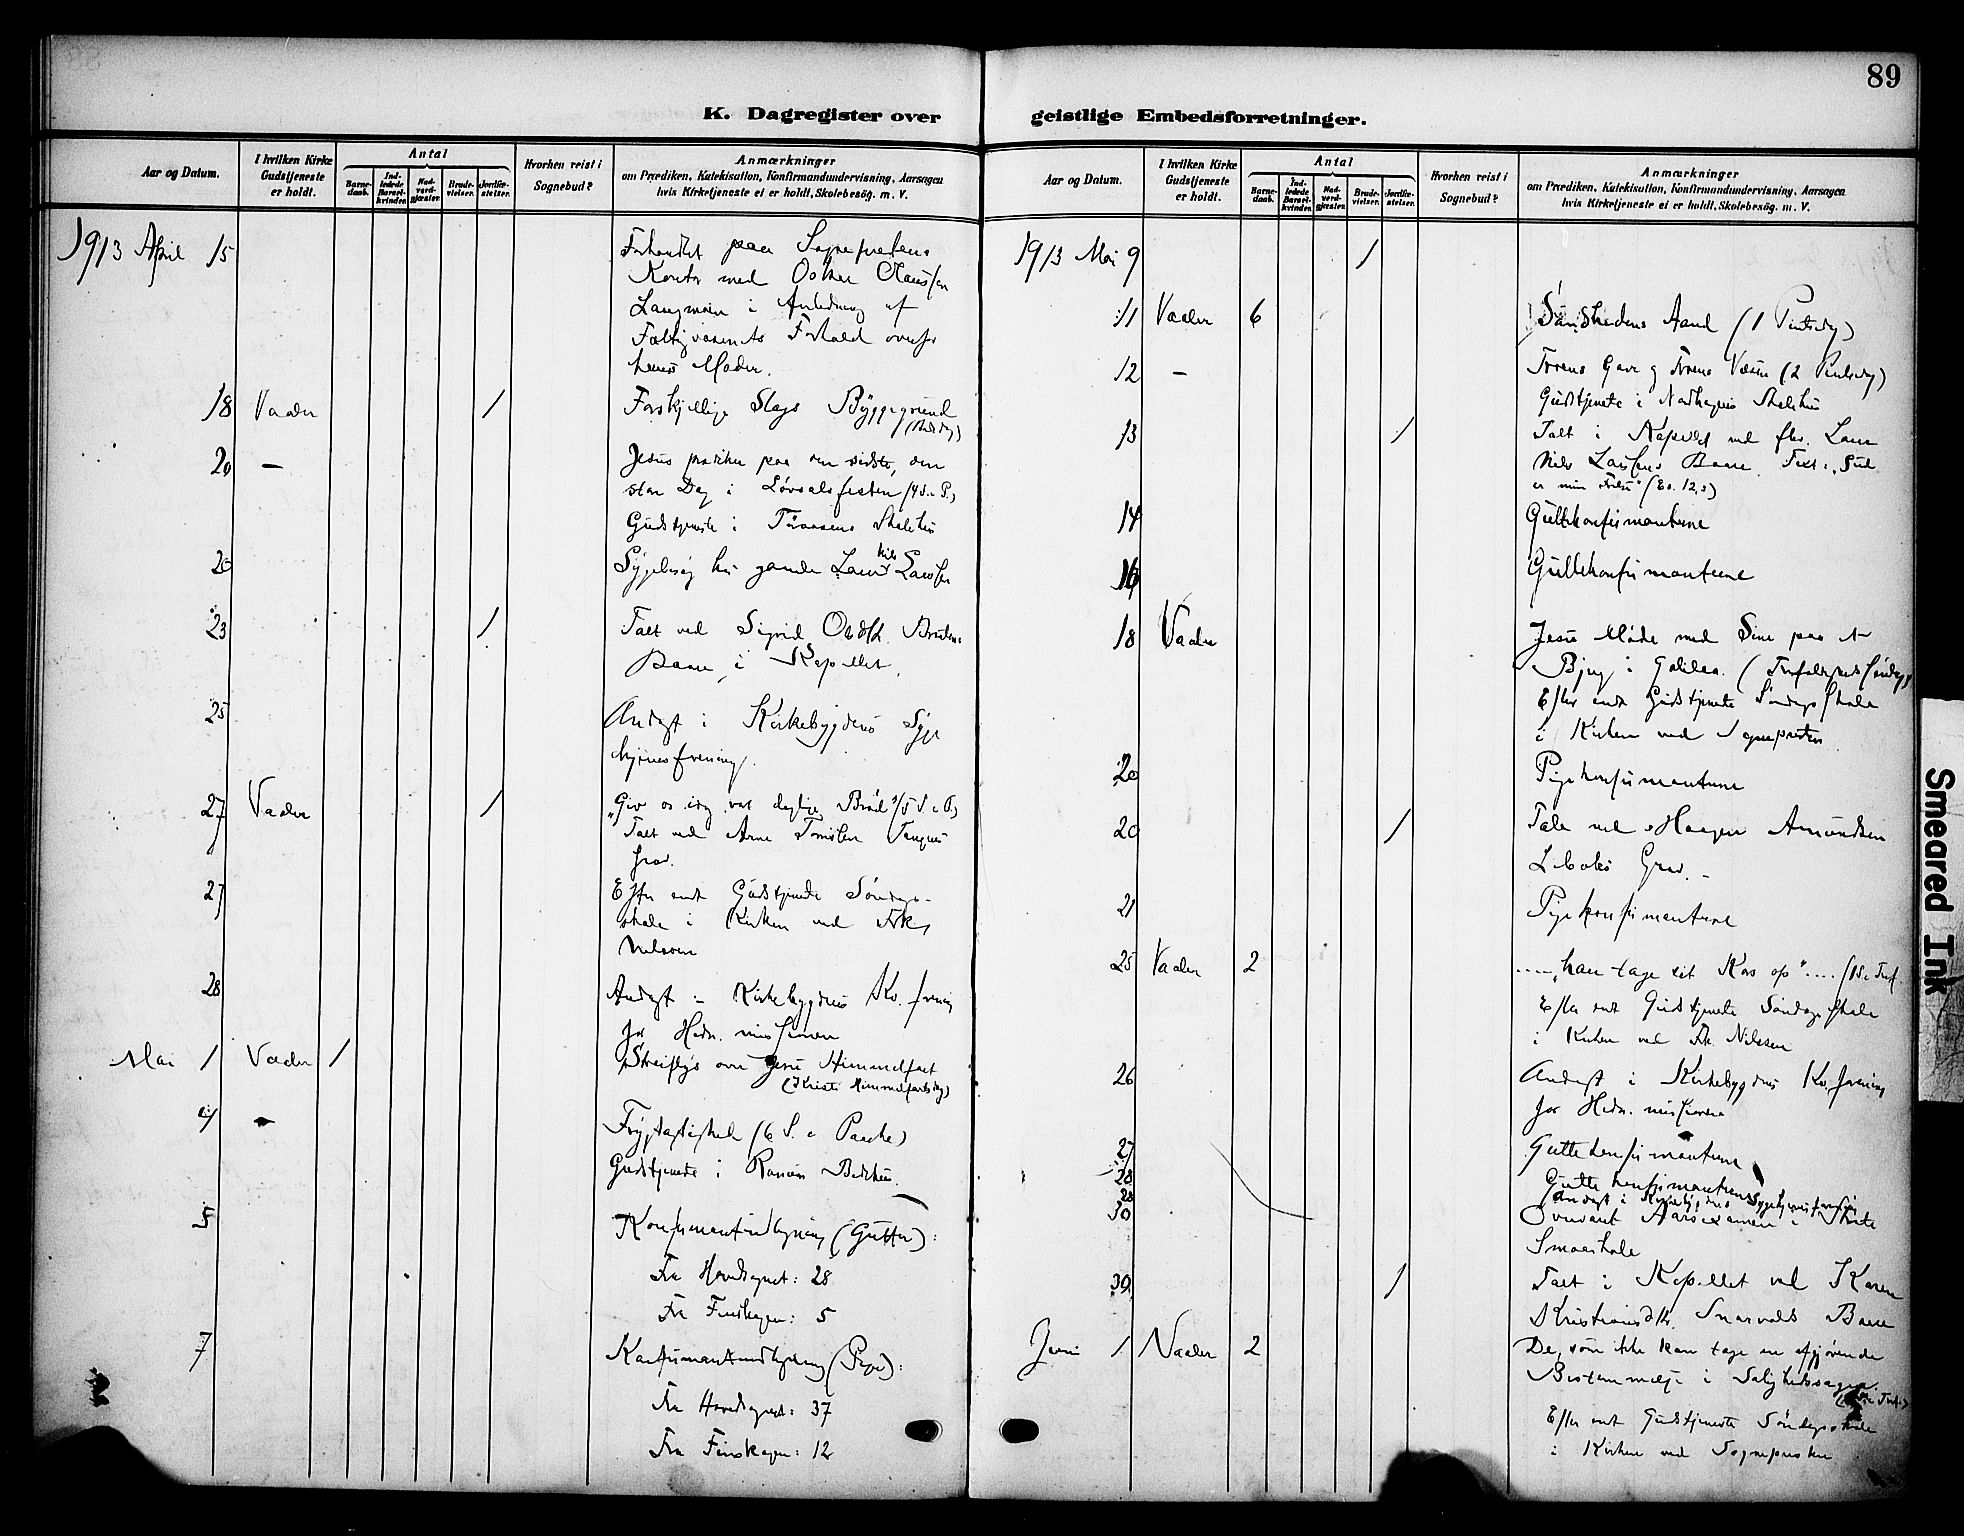 89
K. Dagregister over geistlige Embedsforretninger.
Aar og Datum.
I hvilken Kirke Gudstjeneste er holdt.
Antal
Barne-daab.
Ind-ledede Barsel-kvinder.
Nad-verd-gjæster.
Brude-vielser.
Jordfæ-stelser.
Hvorhen reist i Sognebud?
Anmærkninger
om Prædiken, Katekisation, Konfirmandundervisning, Aarsagen
hvis Kirketjeneste ei er holdt, Skolebesøg. m. V.
1913 April 15 Forhandlet paa Sogneprestens
Kontor med Oskar Olaussen
i Anledning af
Fattigvæsenets Forhold overfor
hans Moder.
18 Vaaler / Forskjellige Slags Byggegrund
20 – Jesus prædiker paa den sidste, den
store Dag i Løvsalsfesten (4 S. e. P.)
Gudstjeneste i Skolehus
20 Sygebesøg hos gamle Lars Nils Larssen
23 / Talt ved Sigrid
Baare i Kapellet.
25 Andagt i Kirkebygdens Syge
hjemsforening.
27 Vaaler / "Giv os idag vort daglige Brød" (5 S. e. P.)
Talt ved Arne
Grav.
27 Efter endt Gudstjeneste Søndags-
skole i Kirken ved Frk.
Nilssen
28 Andagt i Kirkebygdens Kv. forening
for Hedn. missionen
Mai 1 Vaaler 1 Streiflys over Jesu Himmelfart
(Kristi Himmelfartsdag)
4 – Frygtagtighed (6 S. e. Paaske)
Gudstjeneste i Bedehus.
5 Konfirmantindskrivning (Gutter):
Fra Hovedsognet: 28
Fra Finskogen: 5
7 Konfirmantindskrivning (Piger):
Fra Hovedsognet: 37
Fra Finskogen: 12
Aar og Datum.
I hvilken Kirke Gudstjeneste er holdt.
Antal
Barne-daab.
Ind-ledede Barsel-kvinder.
Nad-verd-gjæster.
Brude-vielser.
Jordfæ-stelser.
Hvorhen reist i Sognebud?
Anmærkninger
om Prædiken, Katekisation, Konfirmandundervisning, Aarsagen
hvis Kirketjeneste ei er holdt, Skolebesøg. m. V.
1913 Mai 9 /
11 Vaaler 6 Sandhedens Aand (1 Pintsedag)
12 – Troens Gave og Troens Væsen (2 Pintsedag)
Gudstjeneste i Skolehus
13 / Talt i Kapellet ved
Nils Larssens Baare. Text: "Gud
er min Frelse" (Es. 12,2)
14 Guttekonfirmanterne
16 Guttekonfirmanterne
18 Vaaler Jesu Møde med Sine paa et
Bjerg i Galilea. (Trefoldighedssøndag)
Efter endt Gudstjeneste Søndagsskole
i Kirken ved Sognepresten
20 Pigekonfirmanterne
20 / Tale ved Haagen Amundsen
Grav.
21 Pigekonfirmanterne
25 Vaaler 2 .... "han tage sit Kors op" .... (1 S. e. Tref.
Efter endt Gudstjeneste Søndagsskole
i Kirken ved Frk. Nilssen
26 Andagt i Kirkebygdens Kv. forening
for Hedn. missionen
27 Guttekonfirmanterne
28 Guttekonfirmanterne
28 Andagt i Kirkebygdens Sygehjemsforening
30 Overværet Aarsexamen i
Smaaskole
30 / Talt i Kapellet ved Karen
Kristiansdtr. Baare
Juni 1 Vaaler 2 De, som ikke kan tage en afgjørende
Bestemmelse i Salighedssagen
Efter endt Gudstjeneste Søndagsskole
i Kirken ved Sognepresten
Smeared Ink